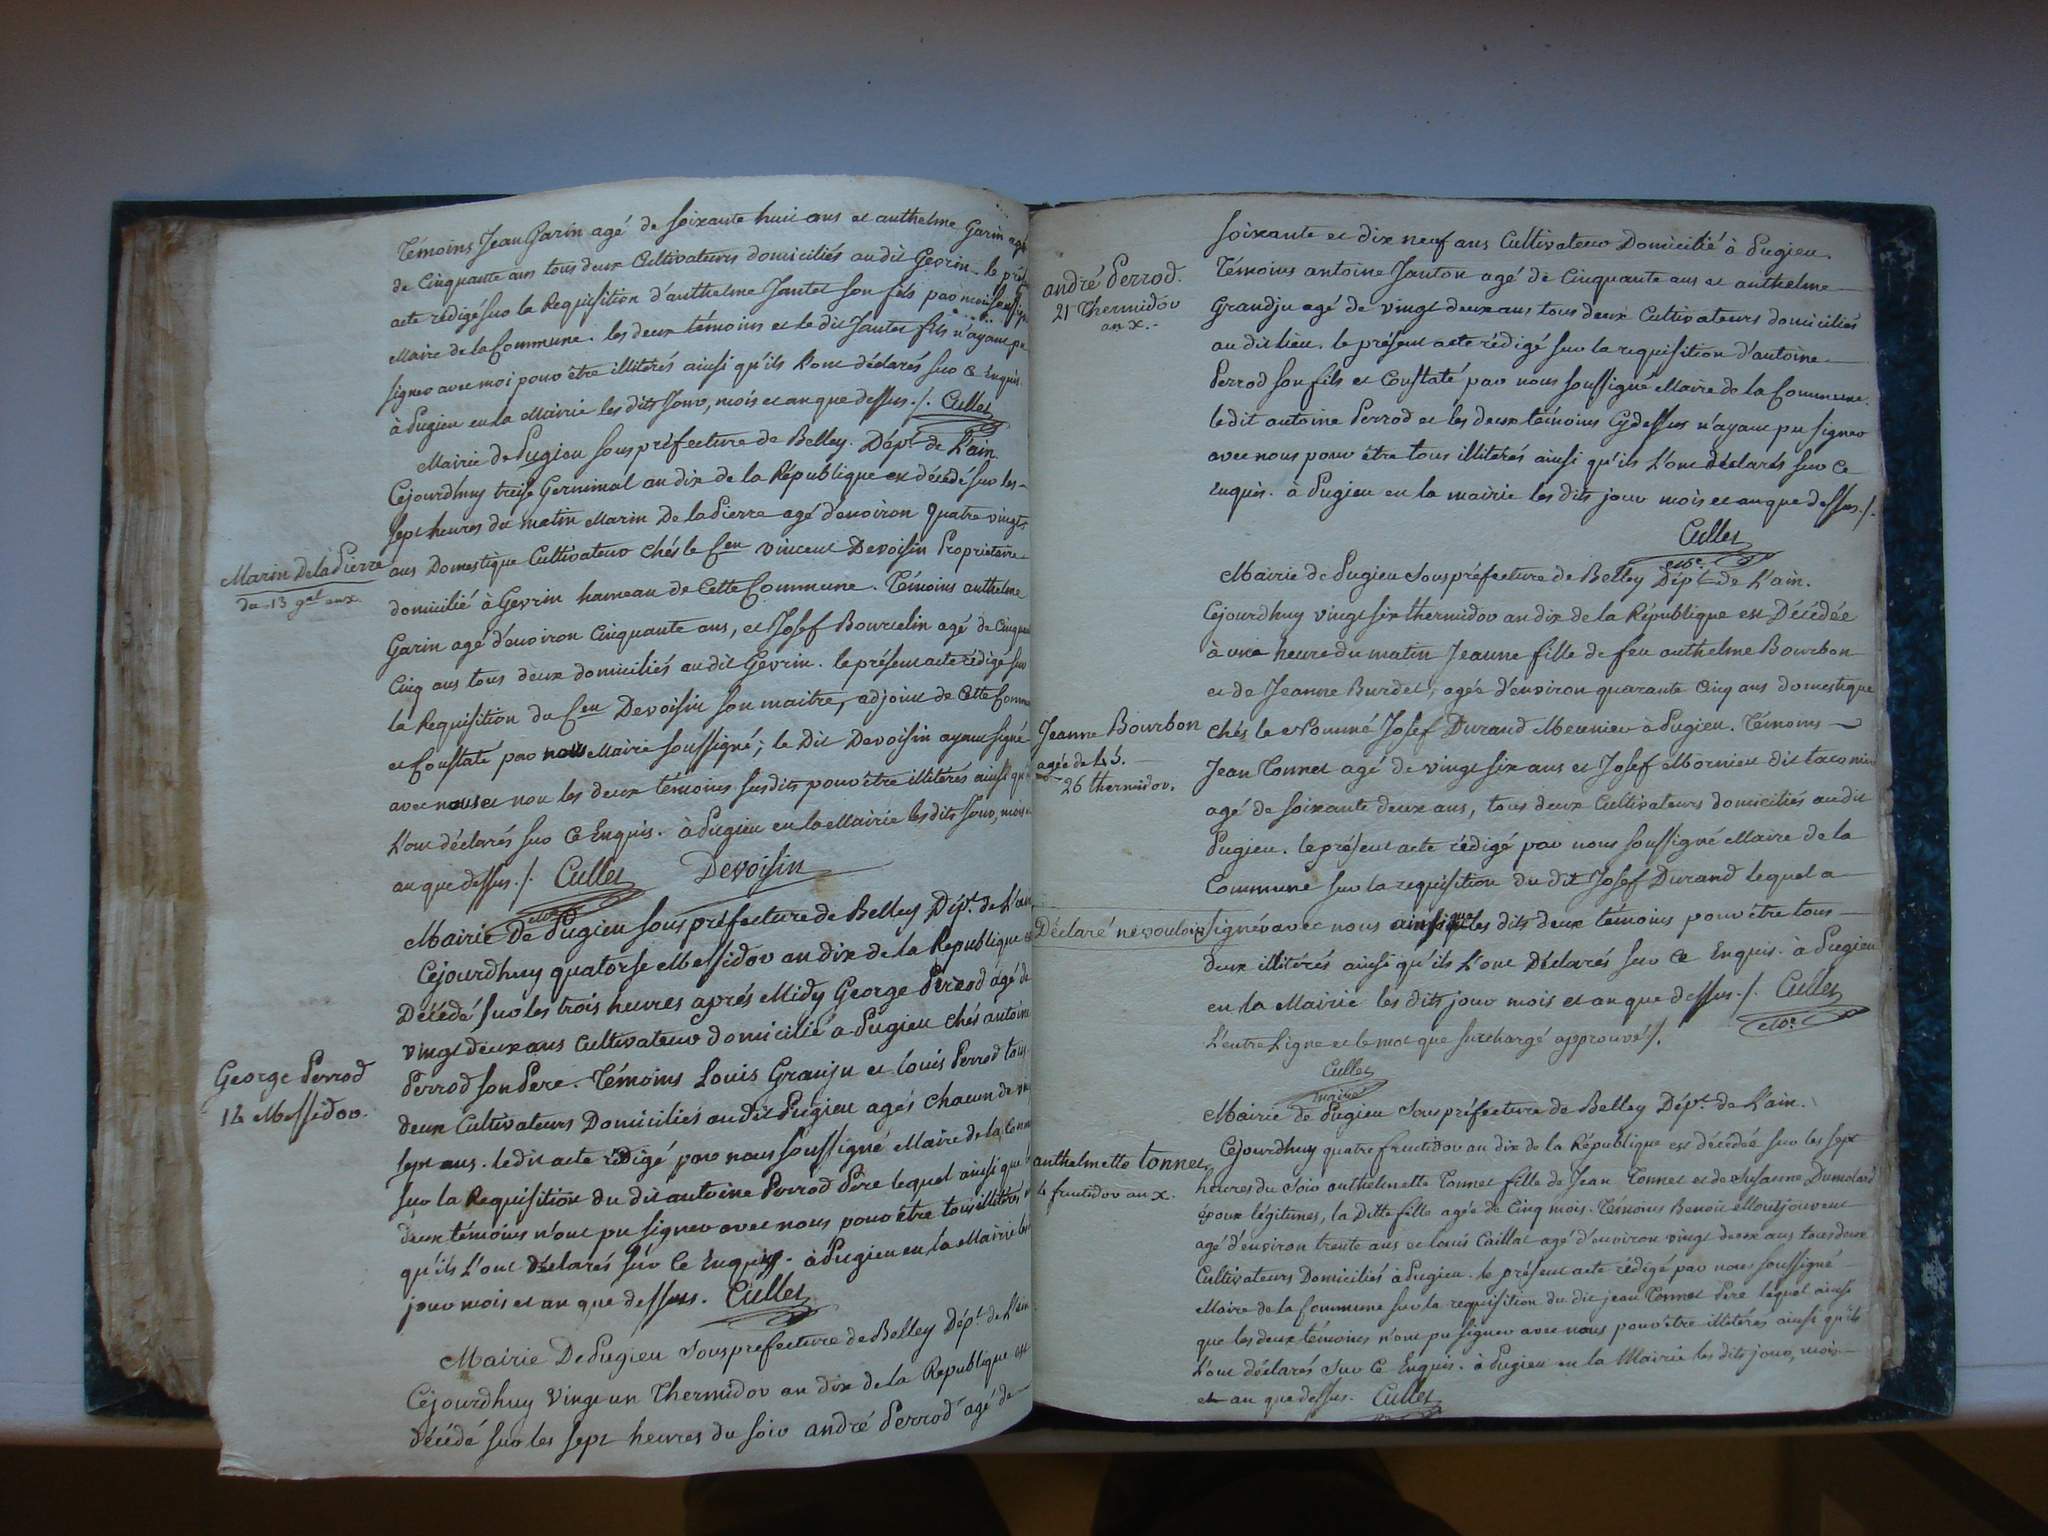 Témoins Jean Garin agé de soixante huit ans et anthelme Garin agé
de Cinquante ans tous deux Cultivateurs domiciliés audit Gevrin. le prés
acte rédigé sur la Requisition d'anthelme Jantet son fils par moi soussigné
Maire de la Commune. les deux témoins et le dit Jantet fils n'ayant pu
signer avec moi pour être illiterés ainsi qu'ils l'ont déclarés sur ce Enquis.
à Pugieu en la Mairie les dits Jour, mois et an que dessus./. Cullet
Mairie de Pugieu souspréfecture de Belley. Dépt. de L'ain.
Cejourdhuy treise Germinal an dix de la République est décédé sur les
sept heures du matin Marin De la Pierre agé d'environ quatre vingts
Marin De la Pierre
du 13 gal anx
ans Domestique Cultivateur chés le Cen vincent Devoisin Proprietaire
domicilié à Gevrin hameau de Cette Commune. Témoins anthelme
Garin agé d'environ Cinquante ans, et Josef Bourcelin agé de Cinquante
Cinq ans tous deux domiciliés au dit Gevrin. le présent acte rédigé sur
la Requisition du Cen Devoisin son maitre, adjoint de Cette Commune
et Constaté par nous Maire soussigné; le Dit Devoisin ayant signé
avec nous et non les deux témoins susdits pour être illiterés ainsi qu'
L'ont déclarés sur Ce Enquis. à Pugieu en la Mairie les dits Jour, mois
an que dessus./. Cullet Devoisin
Mairie De Pugieu souspréfecture de Belley Dépt. de L'ain
Cejourdhuy quatorse Messidor an dix de la Republique est
Décédé sur les trois heures après Midy George Perrod agé de
vingt deux ans Cultivateur domicilié a Pugieu chés antoine
George Perrod
14 Messidor.
Perrod son Pere. Témoins Louis Granju et louis Perrod tous
deux Cultivateurs Domiciliés au dit Pugieu agés chacun de vingt
sept ans. le dit acte rédigé par nous soussigné Maire de la Comm
sur la Requisition du dit antoine Perrod Père lequel ainsi que
deux témoins n'ont pu signer avec nous pour être tous illiterés
qu'ils L'ont déclarés sur Ce Enquis. à Pugieu en la Mairie les
jour mois et an que dessus. Cullet
Mairie De Pugieu souspréfecture de Belley Dépt. de L'ain
Cejourdhuy Vingt un Thermidor an dix de la Republique est
décédé sur les sept heures du soir andré Perrod agé de
soixante et dix neuf ans Cultivateur Domicilié à Pugieu.
andré Perrod.
21 Thermidor
an X.
Témoins antoine Janton agé de Cinquante ans et anthelme
Grandju agé de vingt deux ans tous deux Cultivateurs domiciliés
au dit lieu. le présent acte rédigé sur la requisition d'antoine
Perrod son fils et Constaté par nous soussigné Maire de la Commune.
le dit antoine Perrod et les deux témoins Cydessus n'ayant pu signer
avec nous pour être tous illiterés ainsi qu'ils L'ont déclarés sur Ce
enquis. à Pugieu en la mairie les dits jour mois et an que dessus./.
Cullet
Mre.
Mairie de Pugieu souspréfecture de Belley Dépt. de L'ain.
Cejourdhuy vingt six thermidor an dix de la République est Décédée
à une heure du matin Jeanne fille de feu anthelme Bourbon
et de Jeanne Burdet, agée d'environ quarante Cinq ans domestique
Jeanne Bourbon
agée de 45.
26 thermidor.
chés le Nommé Josef Durand Meunier à Pugieu. Témoins
Jean Tonnet agé de vingt six ans et Josef Mornieu dit
agé de soixante deux ans, tous deux Cultivateurs domiciliés au dit
Pugieu. le présent acte rédigé par nous soussigné Maire de la
Commune sur la requisition du dit Josef Durand lequel a
Déclaré ne vouloir signer avec nous ainsi que les dits deux témoins pour être tous
deux illiterés ainsi qu'ils L'ont Déclarés sur Ce Enquis. à Pugieu
en la Mairie les dits jour mois et an que dessus./. Cullet
Mre.
L'entre Ligne et le mot que surchargé approuvés/.
Cullet
maire
Mairie de Pugieu souspréfecture de Belley Dépt. de L'ain.
Cejourdhuy quatre fructidor an dix de la République est décédée sur les sept
anthelmette tonnet
4 fructidor an X.
heures du soir anthelmette Tonnet fille de Jean Tonnet et de Susanne Dumolard
époux légitimes, la Ditte fille agée de Cinq mois. Témoins Benoit Montjouvent
agé d'environ trente ans et louis Caillat agé d'environ vingt deux ans tous deux
Cultivateurs Domiciliés à Pugieu. le présent acte rédigé par nous soussigné
Maire de la Commune sur la requisition du dit jean Tonnet Pere lequel ainsi
que les deux témoins n'ont pu signer avec nous pour être illiterés ainsi qu'ils
L'ont déclarés sur Ce Enquis. à Pugieu en la Mairie les dits jour, mois
et an que dessus. Cullet